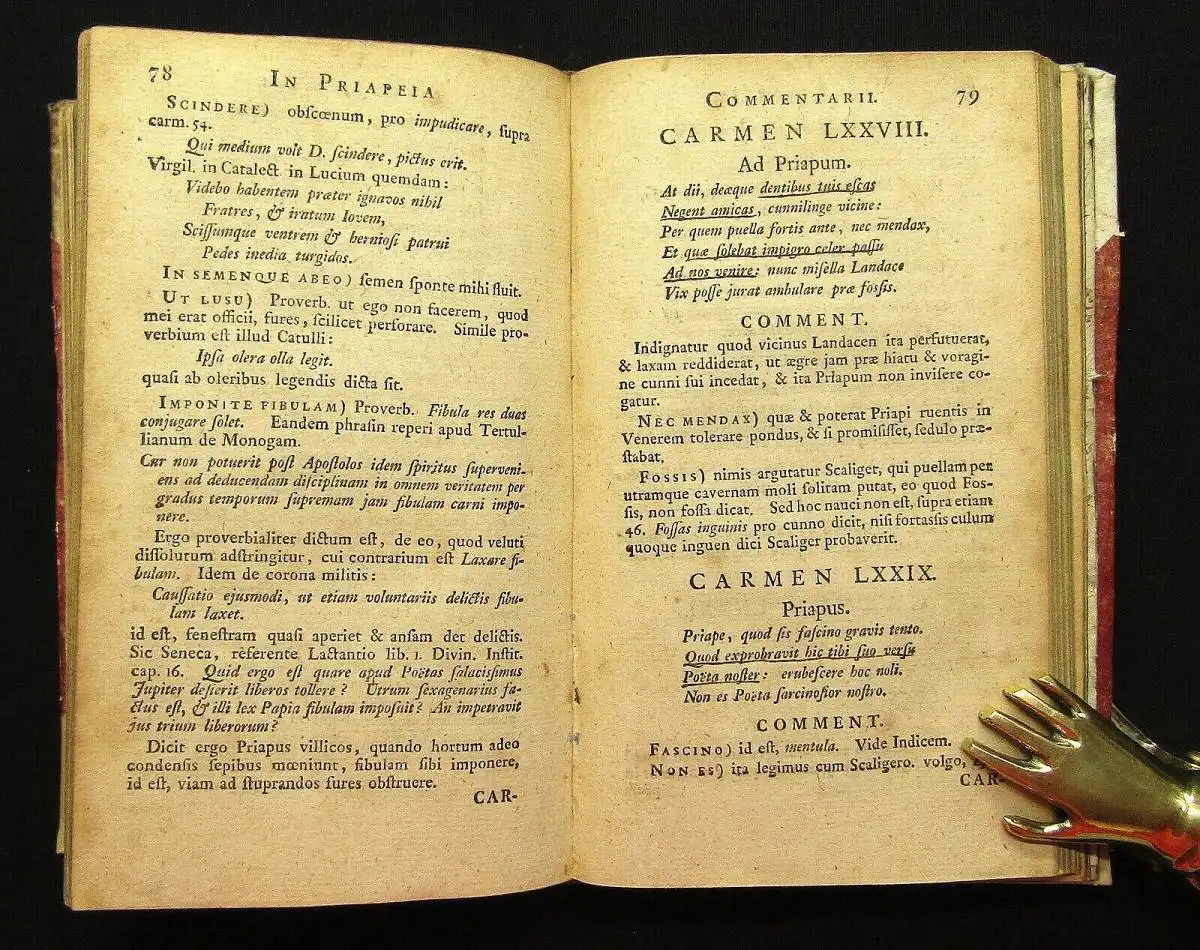 78
IN PRIAPEIA
SCINDERE) obſcœnum, pro impudicare, ſupra
carm. 54.
Qui medium volt D. ſcindere, pictus erit.
Virgil. in Catalect. in Lucium quemdam:
Videbo habentem præter ignavos nihil
Fratres, & iratum Iovem,
Sciſſumque ventrem & hernioſi patrui
Pedes inedia turgidos.
IN SEMENQUE ABEO) ſemen ſponte mihi fluit.
UT LUSU) Proverb. ut ego non facerem, quod
mei erat officii, fures, ſcilicet perforare. Simile pro-
verbium eſt illud Catulli:
Ipſa olera olla legit.
quaſi ab oleribus legendis dicta ſit.
IMPONITE FIBULAM) Proverb. Fibula res duas
conjugare ſolet. Eandem phraſin reperi apud Tertul-
lianum de Monogam.
Cur non potuerit poſt Apoſtolos idem ſpiritus ſuperveni-
ens ad deducendam diſciplinam in omnem veritatem per
gradus temporum ſupremam jam fibulam carni impo-
nere.
Ergo proverbialiter dictum eſt, de eo, quod veluti
diſſolutum adſtringitur, cui contrarium eſt Laxare fi-
bulam. Idem de corona militis:
Cauſſatio ejuſmodi, ut etiam voluntariis delictis fibu-
lam laxet.
id eſt, feneſtram quaſi aperiet & anſam det delictis.
Sic Seneca, referente Lactantio lib. 1. Divin. Inſtit.
cap. 16. Quid ergo eſt quare apud Poëtas ſalaciſſimus
Jupiter deſierit liberos tollere? Utrum ſexagenarius fa-
ctus eſt, & illi lex Papia fibulam impoſuit? An impetravit
jus trium liberorum?
Dicit ergo Priapus villicos, quando hortum adeo
condenſis ſepibus mœniunt, fibulam ſibi imponere,
id eſt, viam ad ſtuprandos fures obſtruere.
CAR-
COMMENTARII.
79
CARMEN LXXVIII.
Ad Priapum.
At dii, deæque dentibus tuis eſcas
Negent amicas, cunnilinge vicine:
Per quem puella fortis ante, nec mendax,
Et quæ ſolebat impigro celer paſſu
Ad nos venire: nunc miſella Landace
Vix poſſe jurat ambulare præ foſſis.
COMMENT.
Indignatur quod vicinus Landacen ita perfutuerat,
& laxam reddiderat, ut ægre jam præ hiatu & voragi-
ne cunni ſui incedat, & ita Priapum non inviſere co-
gatur.
NEC MENDAX) quæ & poterat Priapi ruentis in
Venerem tolerare pondus, & ſi promiſiſſet, ſedulo præ-
ſtabat.
FOSSIS) nimis argutatur Scaliger, qui puellam per
utramque cavernam moli ſolitam putat, eo quod Foſ-
ſis, non foſſa dicat. Sed hoc nauci non eſt, ſupra etiam
46. Foſſas inguinis pro cunno dicit, niſi fortaſſis culum
quoque inguen dici Scaliger probaverit.
CARMEN LXXIX.
Priapus.
Priape, quod ſis faſcino gravis tento.
Quod exprobravit hic tibi ſuo verſu
Poëta noſter: erubeſcere hoc noli.
Non es Poëta ſarcinoſior noſtro.
COMMENT.
FASCINO) id eſt, mentula. Vide Indicem.
NON ES) ita legimus cum Scaligero. volgo,
CAR-